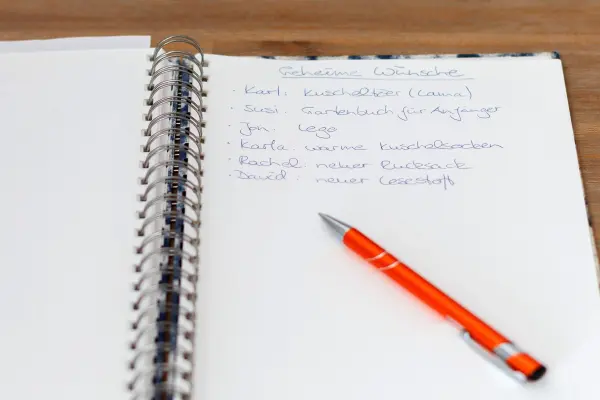 Geheime Wünsche
· Karl: Kuscheltier (Lama)
· Susi: Gartenbuch für Anfänger
· Jon: Lego
· Karla: warme Kuschelsocken
· Rachel: neuer Rucksack
· David: neuer Lesestoff